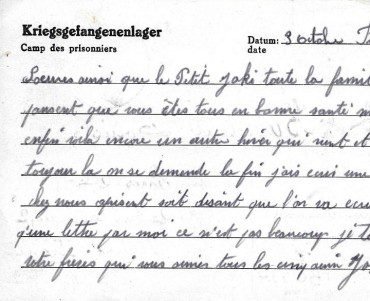 Kriegsgefangenenlager
Camp des prisonniers
Datum:
date
3 octobre
Soeures ainsi que le Petit Jaki toute la famil
pansent que vous êtes tous en bonne santé
enfin voila encore un autre hiver qui vient et
toujour la m se demande la fin j'ais ecris une
chez nous apresent soit disant que l'on va ecri
q'une lettre par moi ce n'est pas beaucoup je te
votre frères qui vous aimer tous les cinq